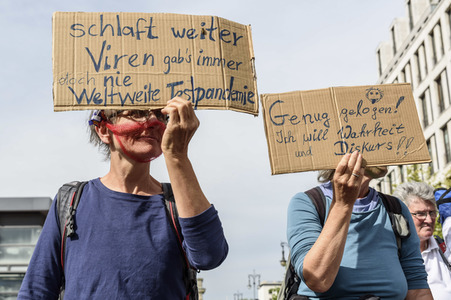 schlaft weiter
Viren gab's immer
doch nie
Weltweite Testpandemie
Genug gelogen!
Ich will Wahrheit
und Diskurs!!!